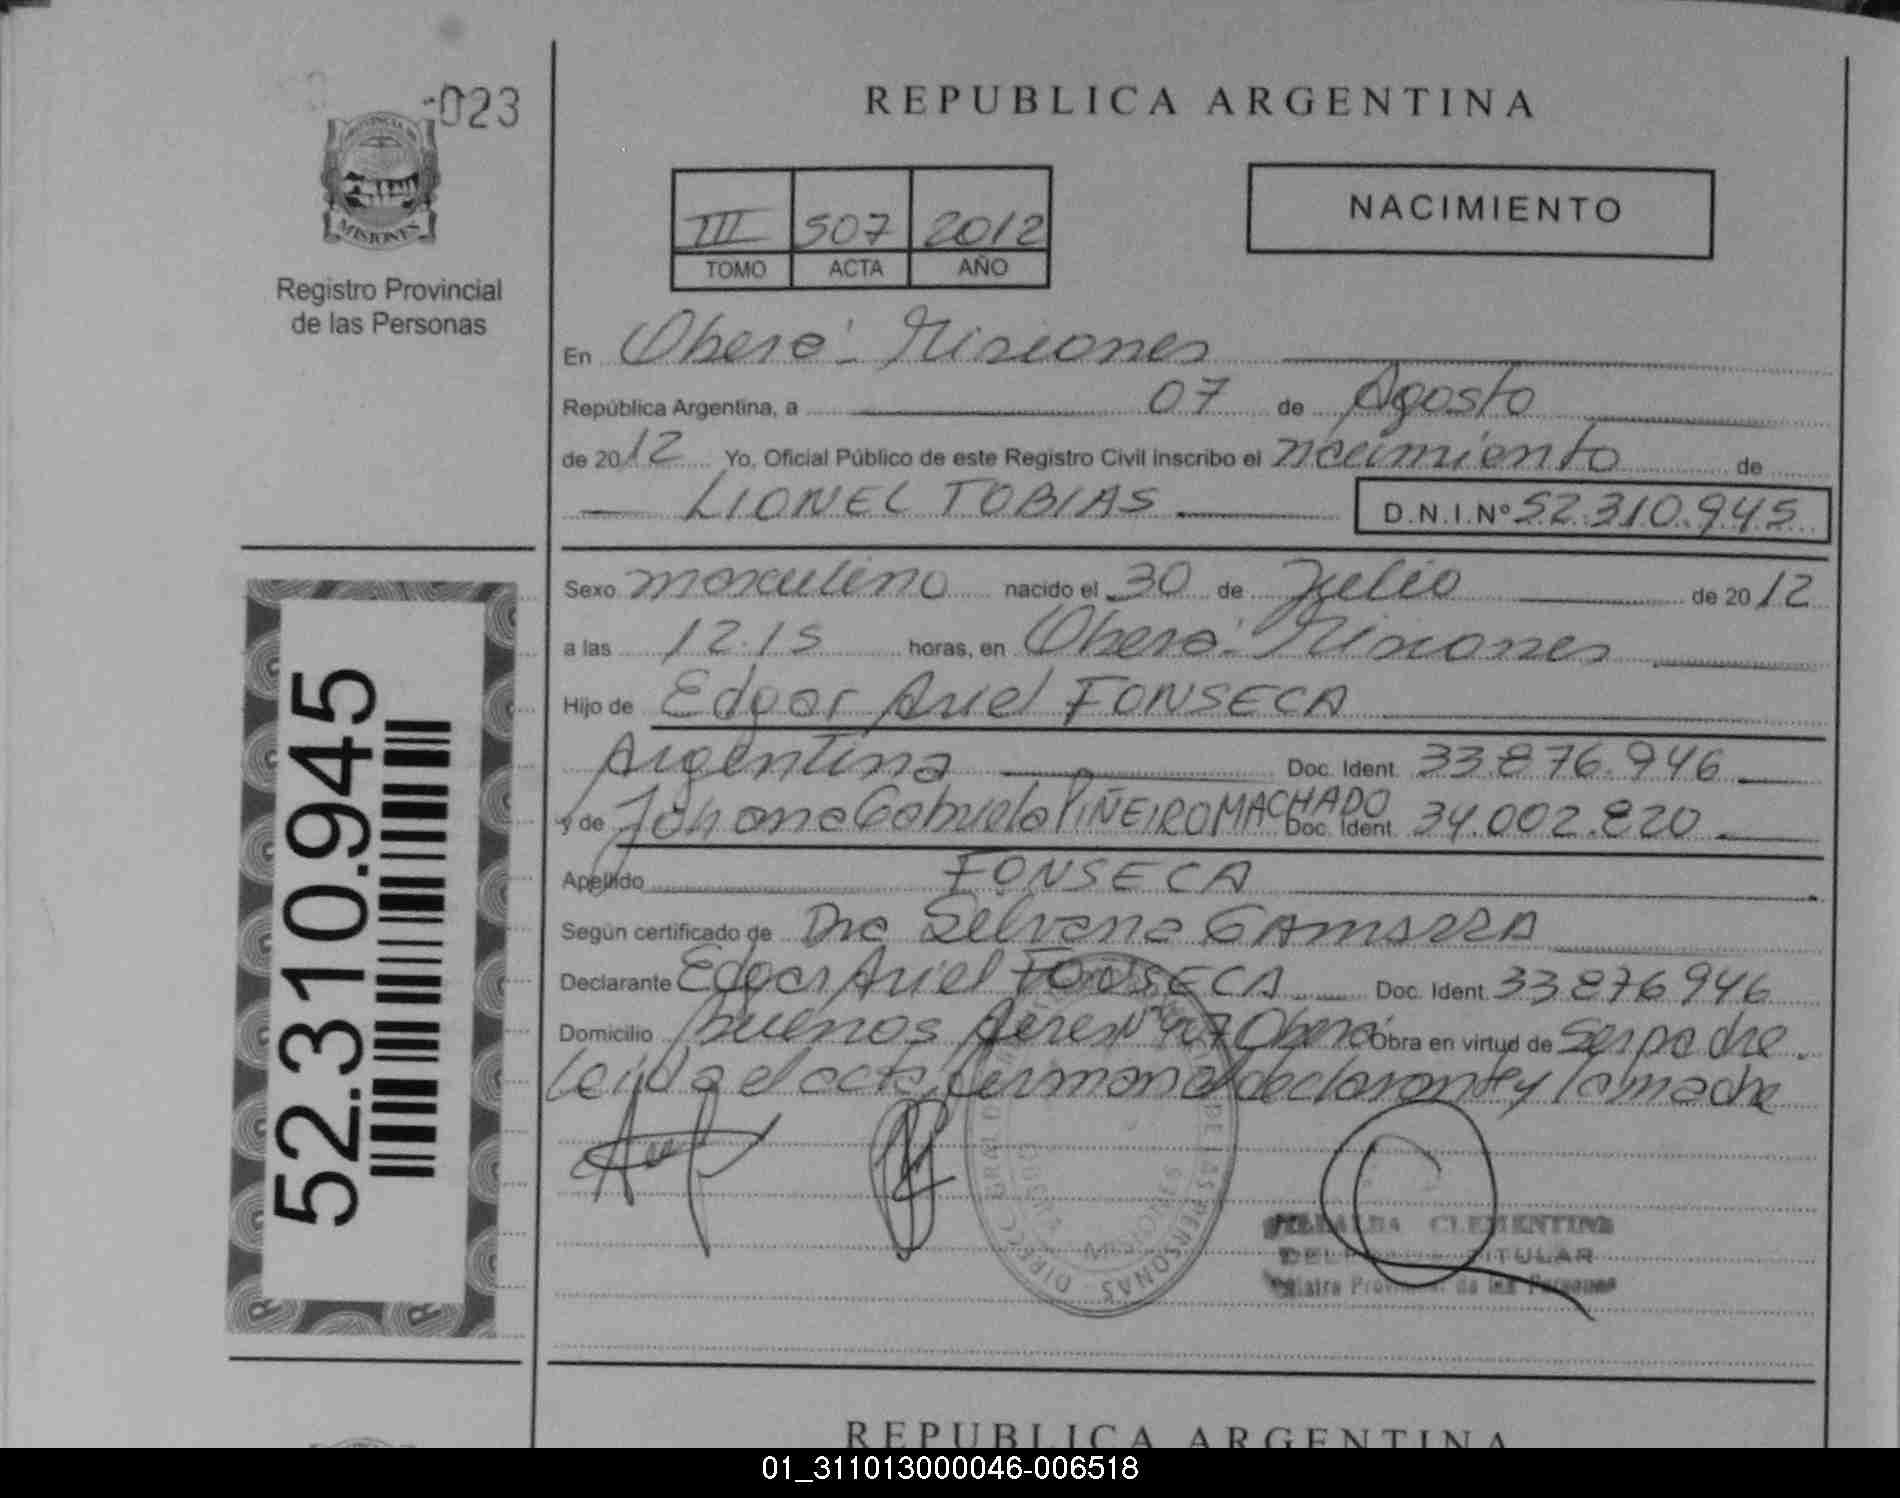 023
PROVINCIA DE
MISIONES
Registro Provincial
de las Personas
REPUBLICA ARGENTINA
III 507 2012
TOMO ACTA AÑO
NACIMIENTO
En Oberá - Misiones
República Argentina, a 07 de Agosto
de 2012 Yo, Oficial Público de este Registro Civil inscribo el nacimiento de
LIONEL TOBIAS D.N.I.Nº 52.310.945
Sexo masculino nacido el 30 de Julio de 2012
a las 12.15 horas, en Oberá - Misiones
Hijo de Edgar Ariel FONSECA
Argentina Doc. Ident. 33.876.946
y de Johana Gabriela PIÑEIRO MACHADO Doc. Ident. 34.002.820
Apellido FONSECA
Según certificado de Dra Silvana GAMARRA
Declarante Edgar Ariel FONSECA Doc. Ident. 33876946
Domicilio buenos Aires Nº 47 Oberá Obra en virtud de ser padre.
Leida el acta, firman el declarante y la madre
MISIONES
DE LAS PERSONAS
CLEMENTINA
TITULAR
de las Personas
52.310.945
REPUBLICA ARGENTINA
01_311013000046-006518